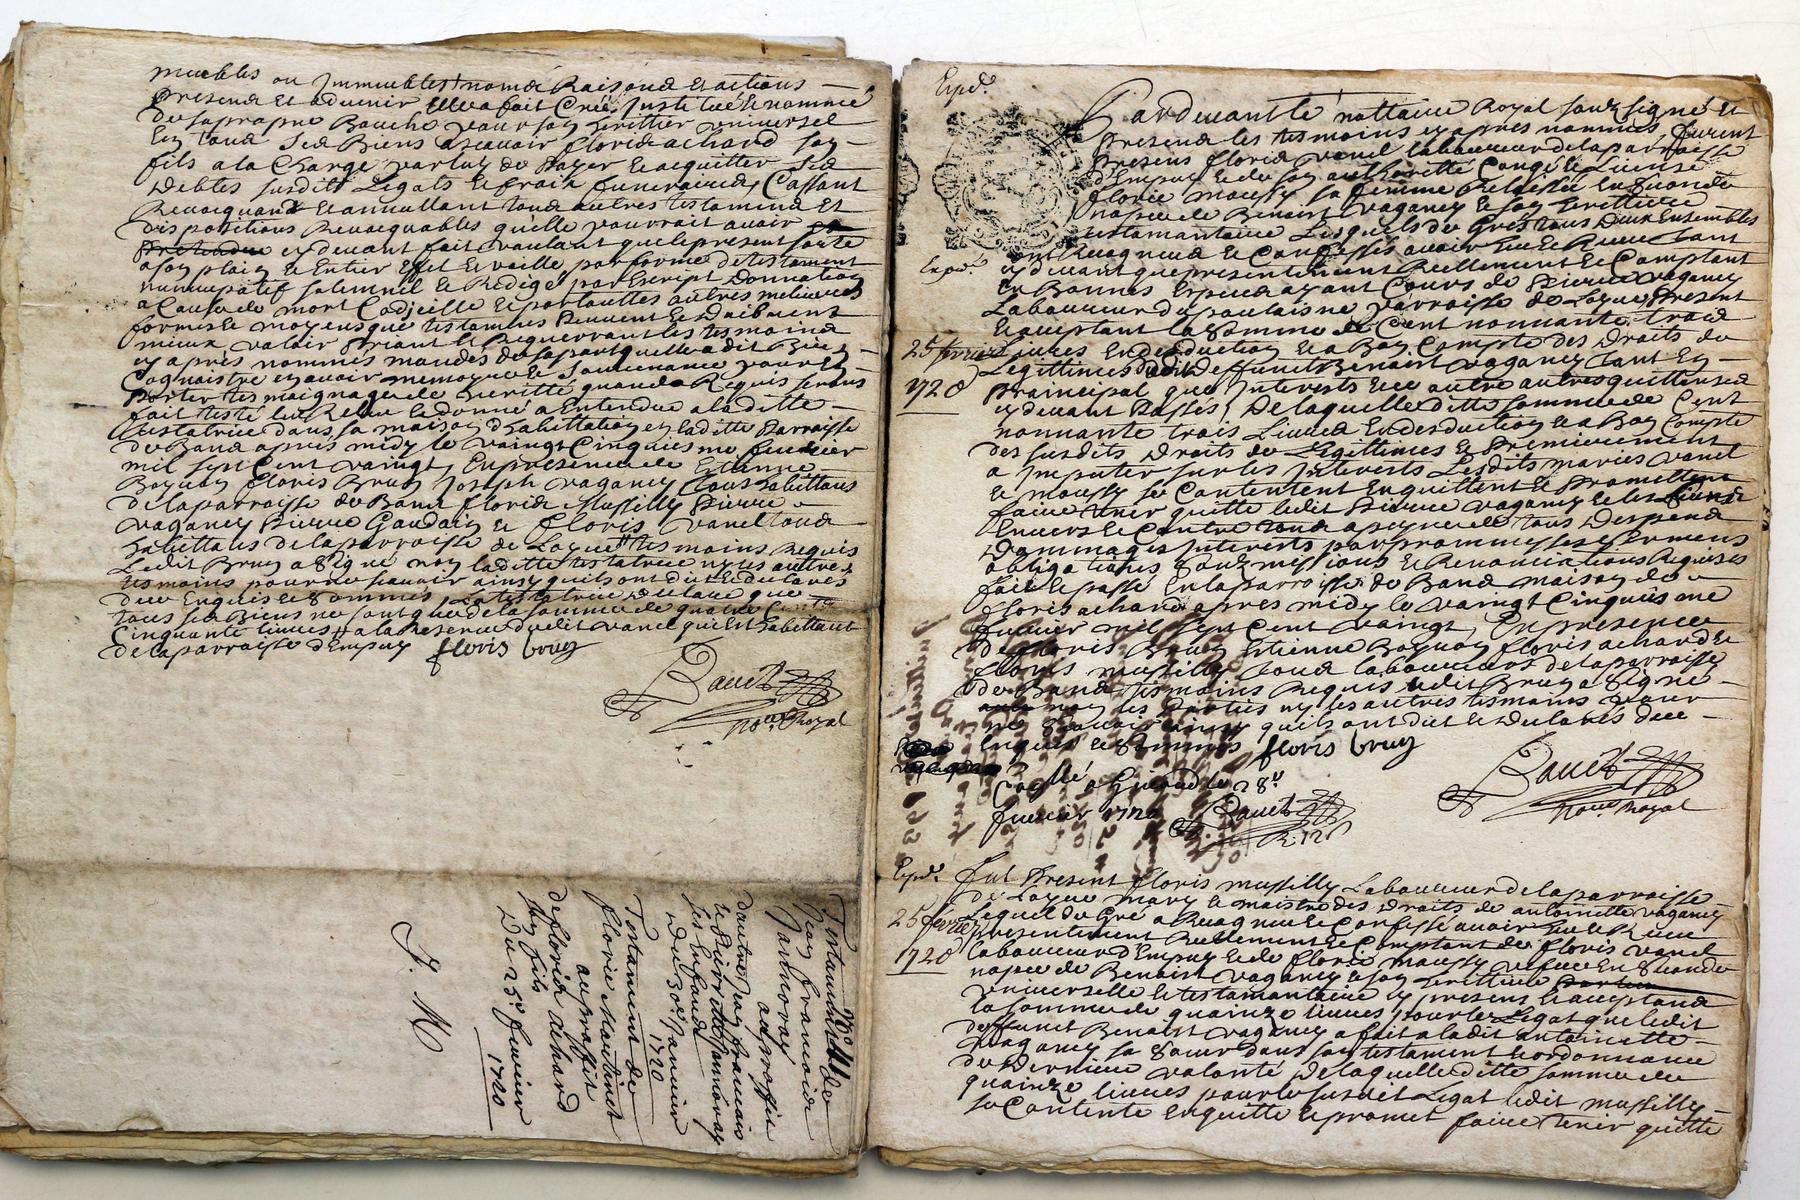 meubles ou Immeubles noms Raisons et actions
presens et advenir Elle a fait Créé Institué et nommé
de sa propre Bouche pour son herittier universel
En tous Ses Biens ascavoir floris achard son
fils a la Charge par luy de payer et acquitter Ses
debtes susdits Legats et fraix funeraires, Cassant
Revocquant et annullant tous autres testamens et
dispositions Revocquables qu'elle pourrait avoir
cy devant fait voulant que le present sorte
a son plain et Entier Effet et vaille par forme de testament
nuncupatif solemnel et Redigé par Escript donnation
a Cause de mort Codicille et par touttes autres melieures
formes et moyens que testamens peuvent et doibvent
mieux valoir priant et Requerrant les tesmoins
cy apres nommés mandés de sa part quelle a dit Bien
Cognaistre en avoir memoyre et Souvenance pour En
porter tesmoignage de verité quand Requis serons
fait testé leu Releu et donné a Entendre a laditte
testatrice dans sa maison d'habittation en laditte parroisse
de Band apres midy le vaingt Cinquiesme feuvrier
mil sept Cent vaingt, En presence de Etienne
Boyron floris Bruy Joseph vaganey tous habittans
de la parroisse de Band floris Massilly Pierre
vaganey Pierre Gaudain et floris vanel tous
habittans de la parroisse de Layue tesmoins Requis
Ledit Bruy a Signé non laditte testatrice ny les autres
tesmoins pour ne scavoir ainsy qu'ils ont dit et declarés
de ce Enquis et Sommés La testatrice declare que
tous ses Biens ne sont que de la somme de quatre Cents
Cinquante livres a la Reserve dudit vanel qui Est habittant
de la parroisse d'Empuy floris bruy
No.re Royal
Testament de
Jean francois
Jamoray
au proffit
d'autre Jean francois
et Pierre Jamoray
ses Enfans
Du 30e Janvier
1720
Testament de
florie Martinet
au proffit
de floris achard
son fils
Du 25e feuvrier
1720
J. M
Expd.
Pardevant le nottaire Royal soubsigné et
presens les tesmoins cy apres nommés, furent
presens floris vanel laboureur de la parroisse
d'Empuy et de son authorité Congé et License
florie moussy sa femme Relessée En Seconde
nopce de Benoist vaganey et son herittiere
testamantaire Lesquels de Gré tous deux Ensembles
ont Recogneus et Confessés avoir Eu et Receu tant
Expd.
cy devant que presentement Reellement et Comptant
En Bonnes Especes ayant Cours de Pierre vaganey
Laboureur du parroisse de Layue present
Et acceptant la Somme de Cent nonnante trois
25 fevrier
1720
Livres En deduction et a Bon Compte des droits de
Legittimes dudit deffunt Benoist vaganey tant En
Praincipal que Interests et ce outre autres quittances
cy devant passés, De laquelle ditte somme de Cent
nonnante trois Livres En deduction et a Bon Compte
des susdits droits de Legittimes et Premierement
a Imputer sur les Interests Lesdits mariés vanel
et moussy se Contentent En quittent et promettent
faire tenir quitte ledit Pierre vaganey et les siens
Envers et Contre tous a peyne de tous despens
dommages Interests par prommesses sermens
obligations Soubmissions et Renonciations Requises
fait et passé En la parroisse de Band maison de
floris achard apres midy le vaingt Cinquiesme
feuvrier mil sept Cent vaingt, En presence
de floris Bruy Etienne Boyron floris achard et
floris massilly tous laboureurs de la parroisse
de Band tesmoins Requis Ledit Bruy a Signé
non les parties ny les autres tesmoins pour
ne scavoir ainsy qu'ils ont dit et declarés de ce
Enquis et Sommés floris bruy
No.re Royal
28e
feuvrier 1720
R. 12
Expd. fut Present floris massilly Laboureur de la parroisse
de Layue mary et maistre des droits de antoinette vaganey
25 fevrier
1720
Lequel de Gré a Recogneu et Confessé avoir Eu et Receu
presentement Reellement et Comptant de floris vanel
laboureur d'Empuy et de florie moussy vefve En Seconde
nopce de Benoist vaganey et son herittiere
universelle et testamantaire cy presens et acceptans
la somme de quainze livres pour les Legat que ledit
deffunt Benoist vaganey a fait a ladit antoinette
vaganey sa Soeur dans son testament et ordonnance
de derniere volonté De laquelle ditte somme de
quainze livres pour le susdit Legat ledit massilly
se Contente En quitte et promet faire tenir quitte